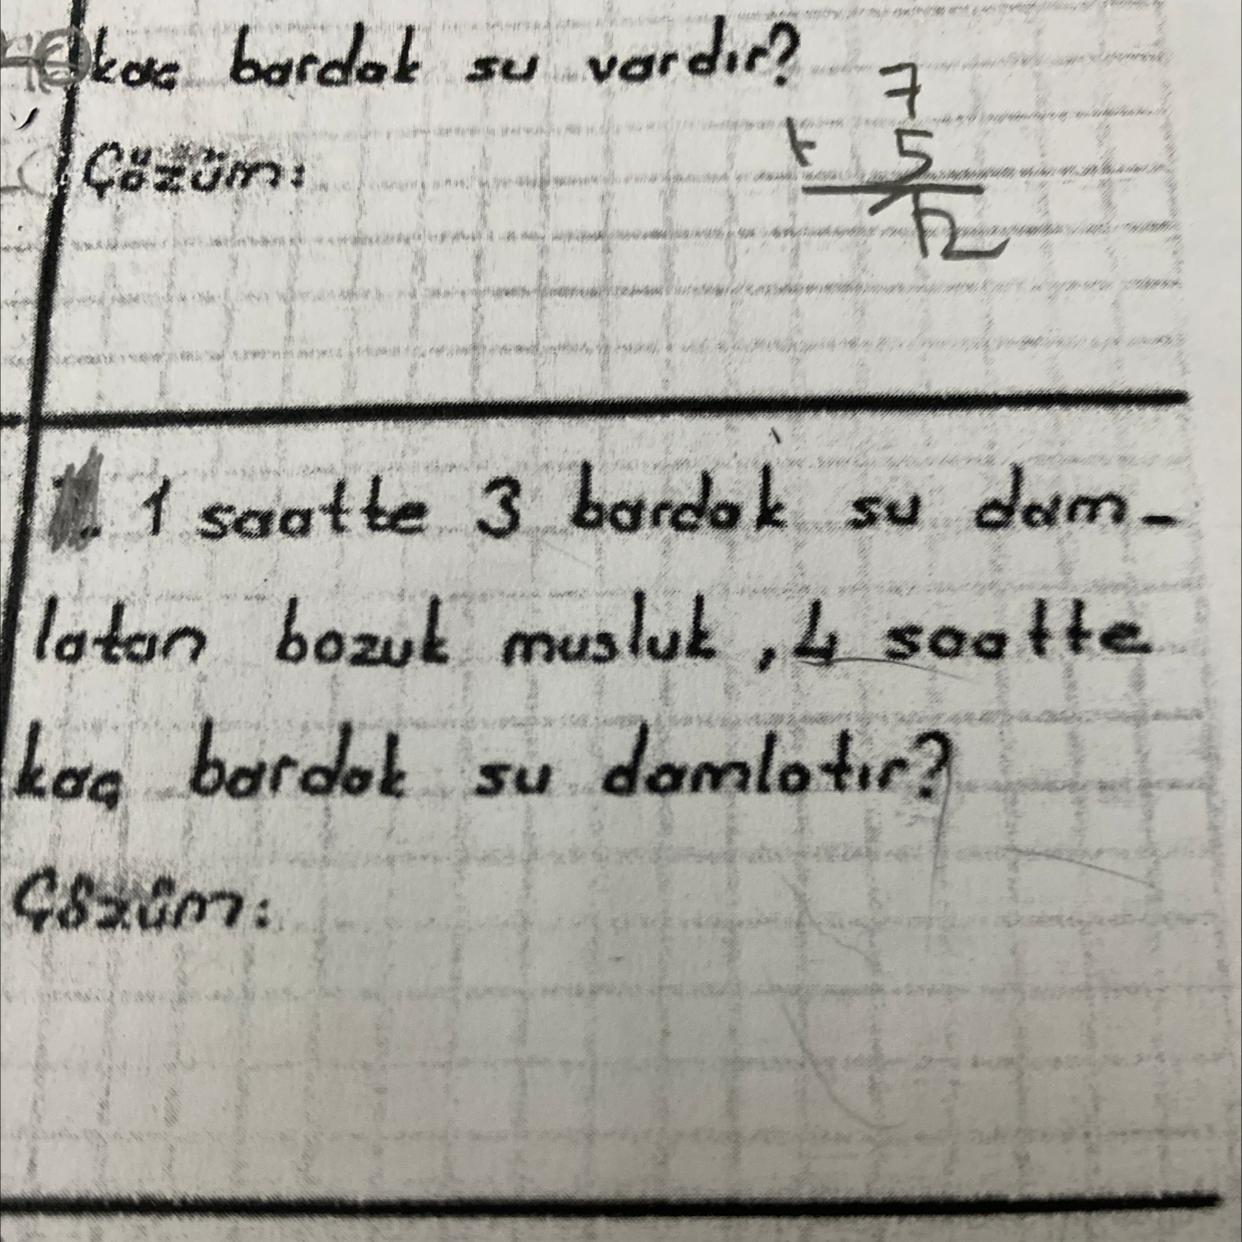 kaç bardak su vardır?
7
Çözüm:
+ 5
12
1 saatte 3 bardak su dam-
latan bozuk musluk, 4 saatte
kaç bardak su damlatır?
Çözüm: